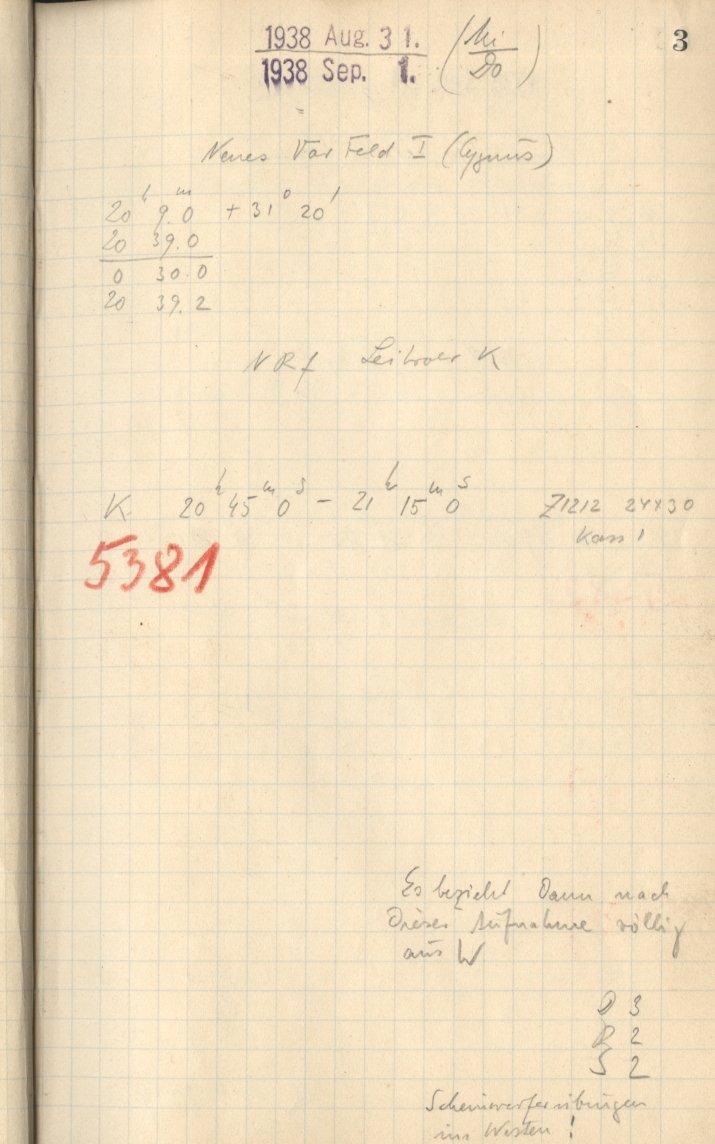 3
1938 Aug. 31. (Mi
1938 Sep. 1. Do)
Neues Var Feld I (Cygnus)
20h 9.0m + 31° 20'
20 39.0
0 30.0
20 39.2
NRf K
K 20h 45m 0s - 21h 15m 0s Z1212 24430
Kass 1
5381
Es bezieht dann nach
dieser Aufnahme völlig
aus W
D 3
R 2
S 2
Scheinwerferübungen
im Westen!